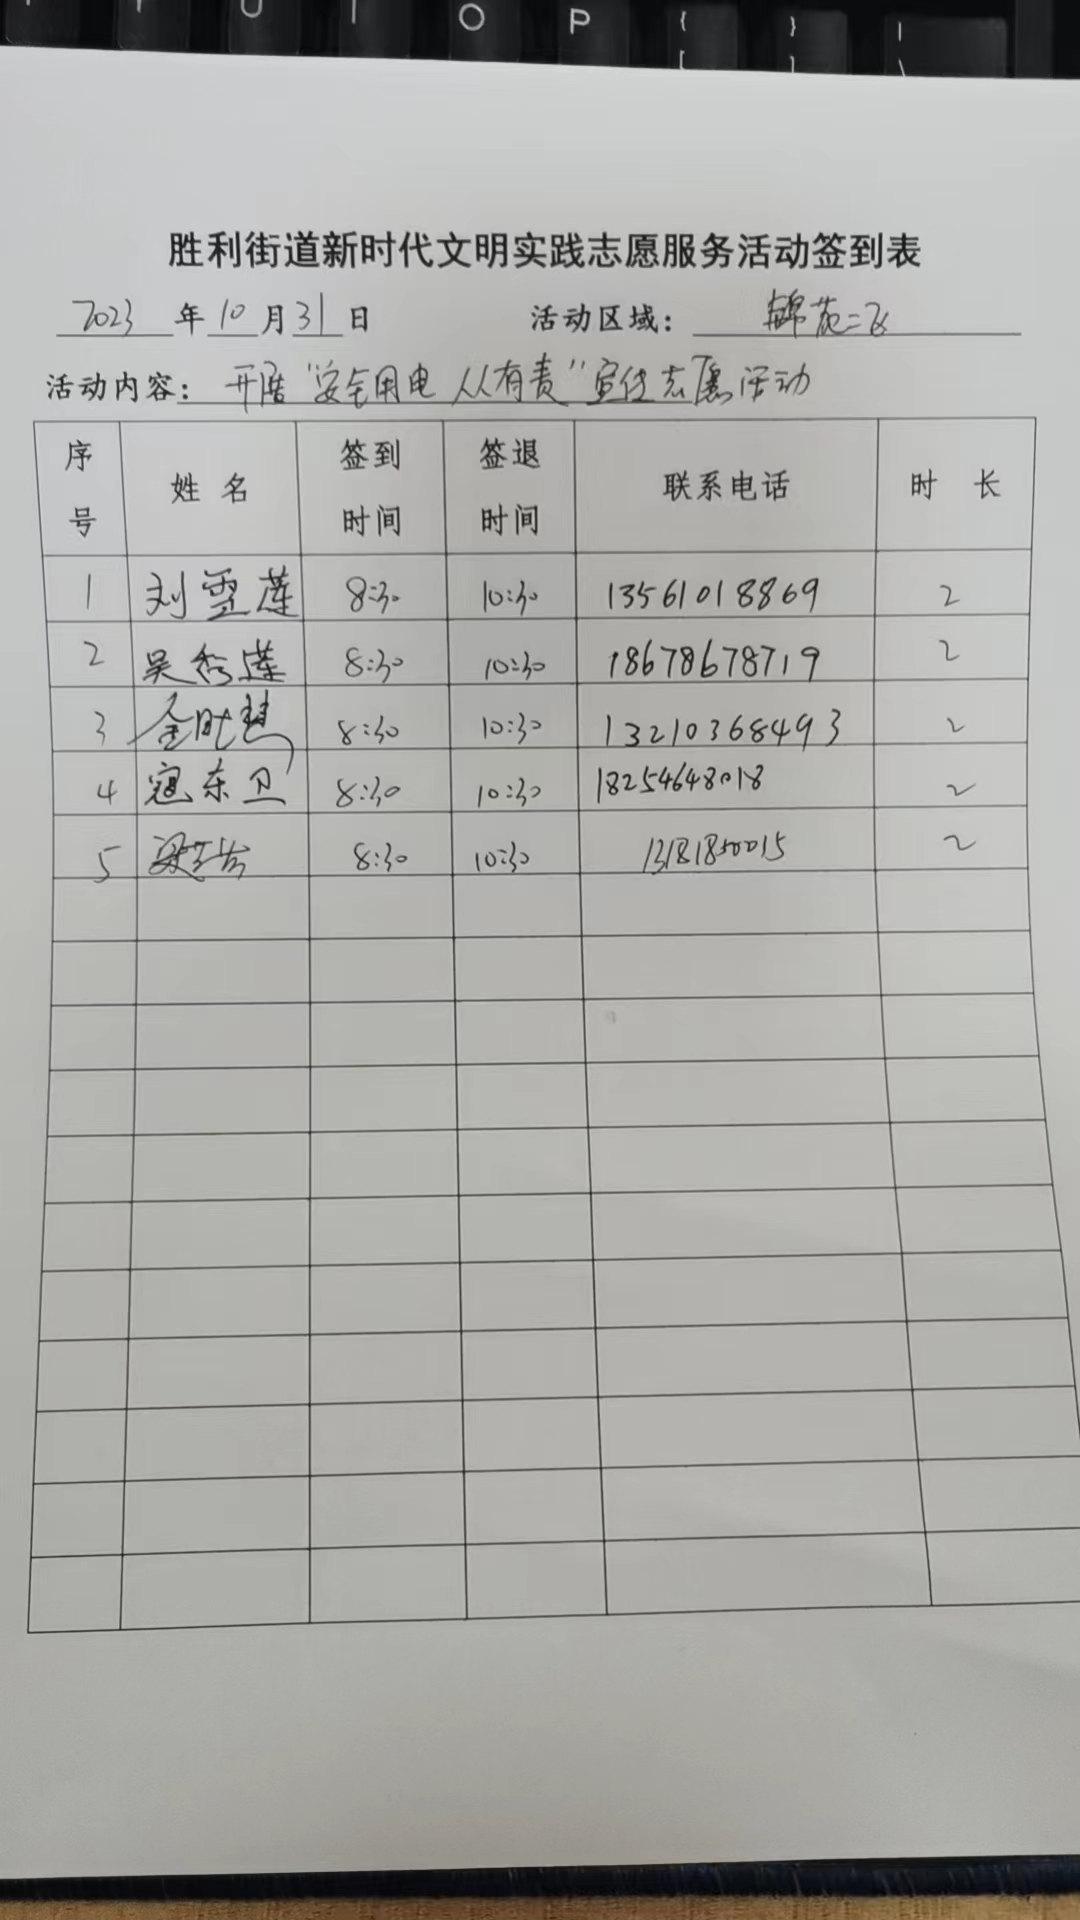 U I O P { }
[ ] | \
胜利街道新时代文明实践志愿服务活动签到表
2023 年 10 月 31 日 活动区域： 锦苑二区
活动内容： 开展“安全用电 人人有责”宣传志愿活动
序号 姓名 签到时间 签退时间 联系电话 时长
1 刘雪莲 8:30 10:30 13561018869 2
2 吴秀莲 8:30 10:30 18678678719 2
3 金 8:30 10:30 13210368493 2
4 寇东卫 8:30 10:30 18254648018 2
5 梁 8:30 10:30 2